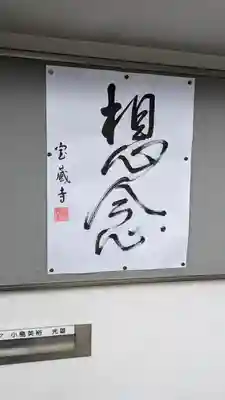 想念
宝蔵寺
小島美裕 光雄